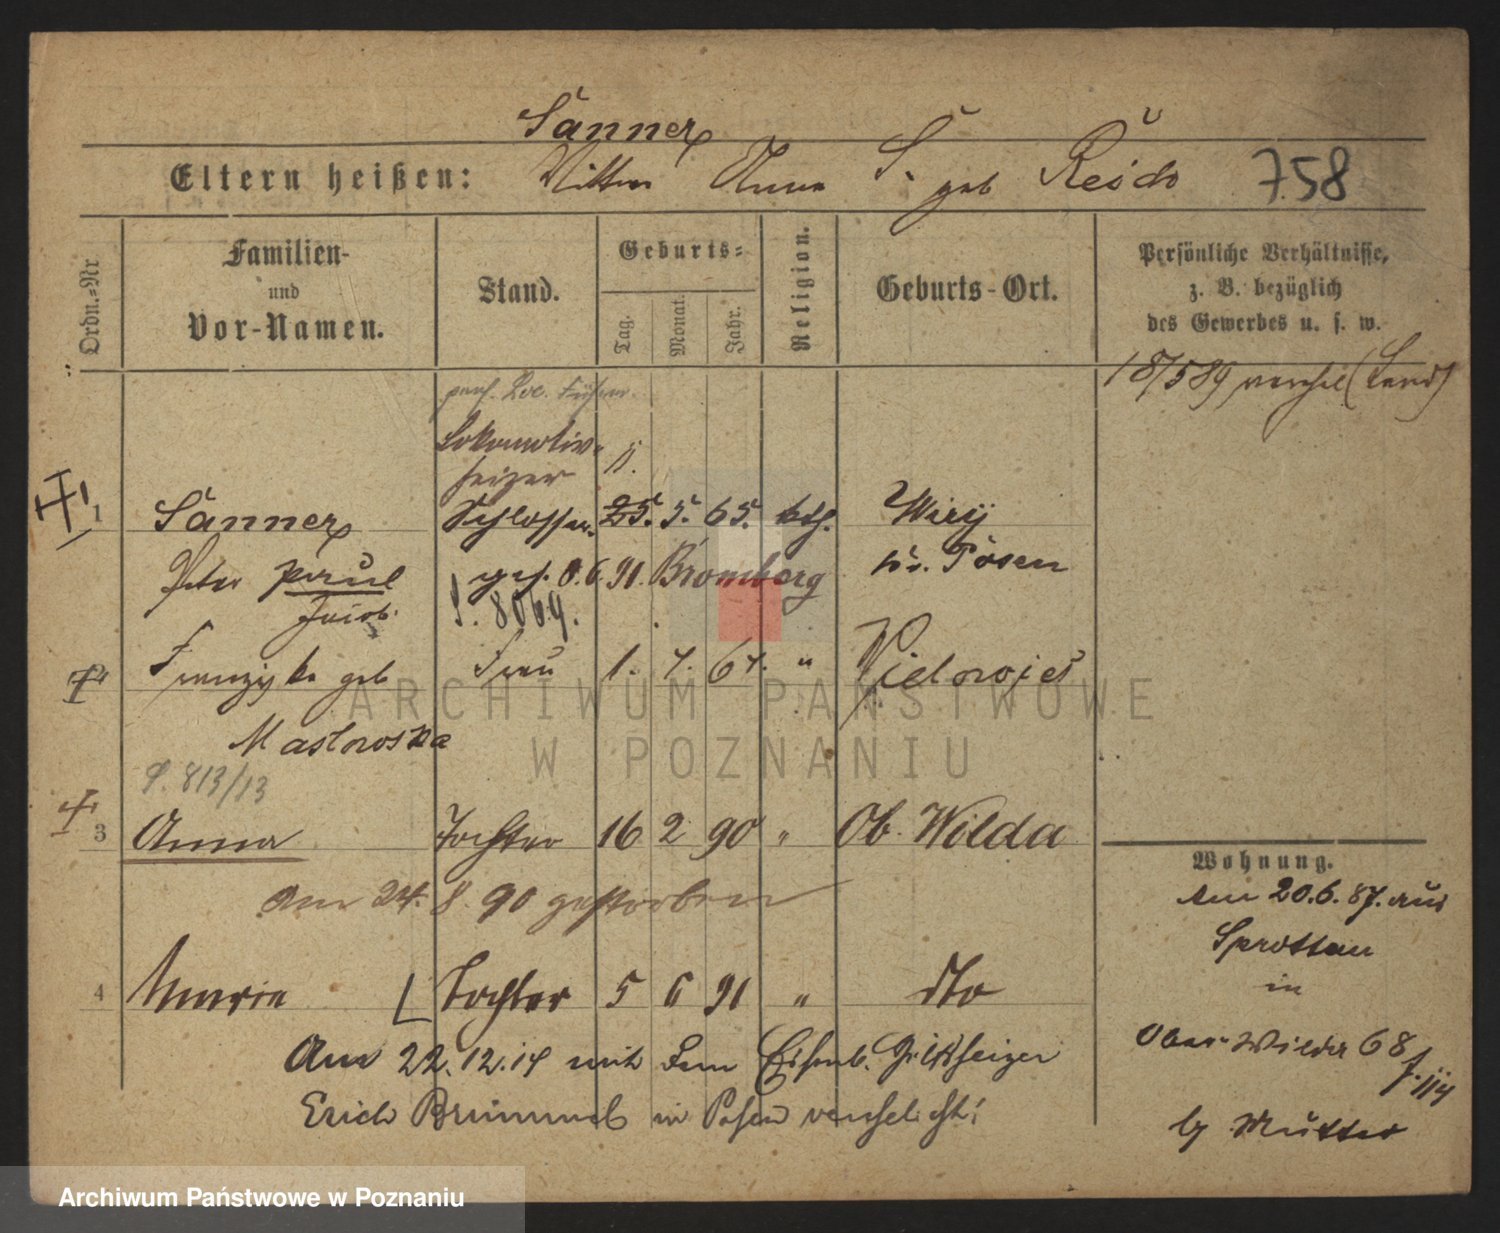 Sanner
Eltern heißen: Anna S. geb Reich 758
Ordn.-Nr
Familien-
und
Vor-Namen.
Stand.
Geburts-
Tag.
Monat.
Jahr.
Religion.
Geburts-Ort.
Persönliche Verhältnisse,
z. B. bezüglich
des Gewerbes u. s. w.
18/589
Lokomotiv-
heizer
1 Sanner Schlosser 25. 5. 65. kth. Wiry
Peter Paul gest. 8.6.91. Bromberg Kr. Posen
Jacob S. 8069.
Franziska geb Frau 1. 7. 67. "
Maslowska
P. 813/13
3 Anna Tochter 16 2 90 " Ob. Wilda
am 24. 8. 90 gestorben
4 Maria Tochter 5 6 91 " dto
Am 22.12.14 mit dem Eisenb. Hilfsheizer
Erich Brümmel in Posen verehelicht!
Wohnung.
Am 20.6.87. aus
Sprottau
in
Ober-Wilda 68
by Mutter
ARCHIWUM PAŃSTWOWE
W POZNANIU
Archiwum Państwowe w Poznaniu